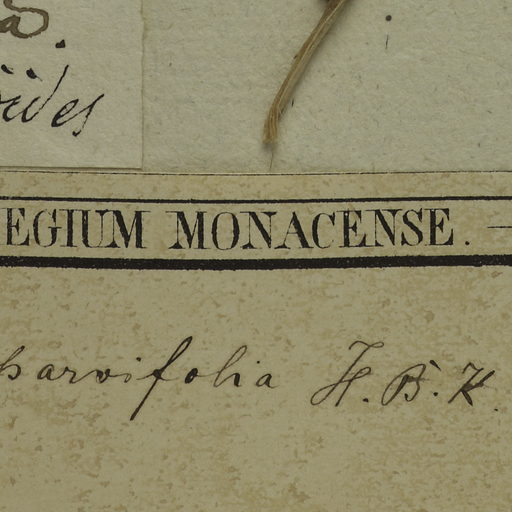 a.
oides
EGIUM MONACENSE. —
parvifolia H. B. K.